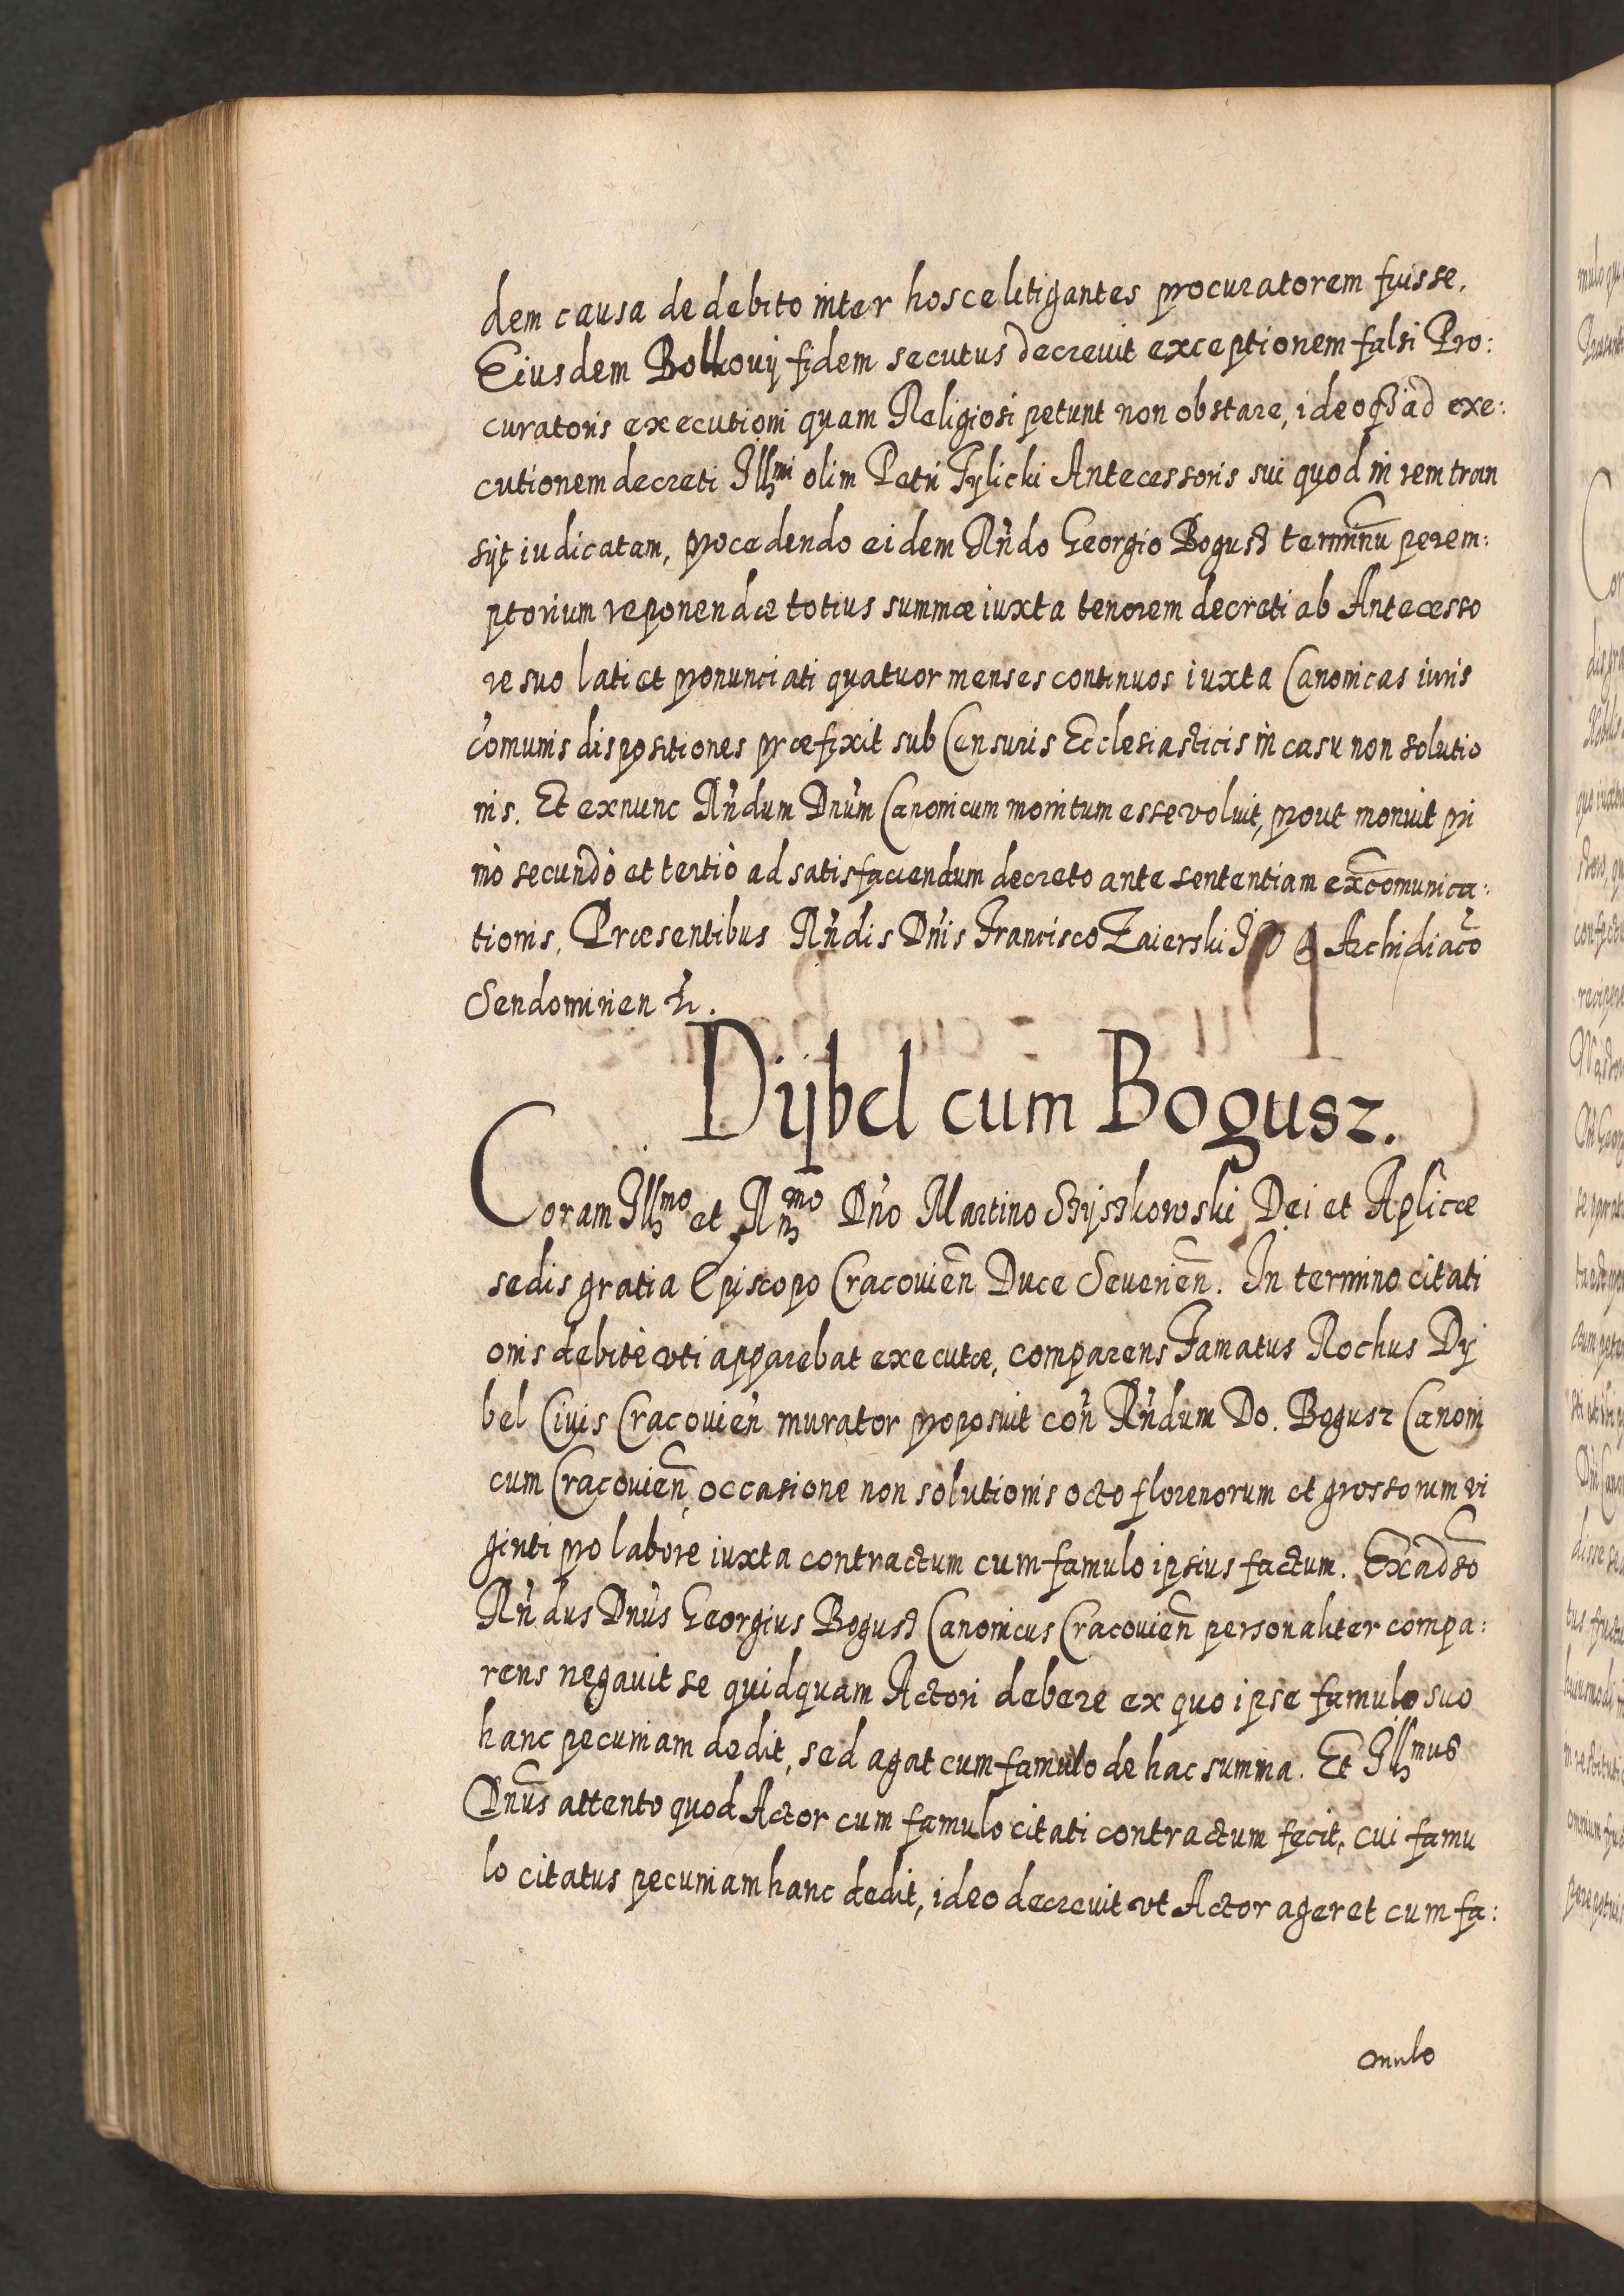 dem causa de debito inter hosce litigantes procuratorem fuisse.
Eiusdem Bolkouij fidem secutus decreuit exceptionem falsi Pro:
curatoris executioni quam Religiosi petunt non obstare, ideoq3 ad exe:
cutionem decreti Illmi olim Petri Tylicki Antecessoris sui quod in rem tran
sijt iudicatam, procedendo eidem Rńdo Georgio Bogusz terminū perem:
ptorium reponendæ totius summæ iuxta tenorem decreti ab Antecesso
re suo lati et pronunciati quatuor menses continuos iuxta Canonicas iuris
comunis dispositiones præfixit sub Censuris Ecclesiasticis in casu non solutio
nis. Et exnunc Rńdum Dnūm Canonicum monitum esse voluit, prout monuit pri
mò secundò et tertiò ad satisfaciendum decreto ante sententiam excōmunica:
tionis. Præsentibus Rńdis Dńis Francisco Zaierski Archidiacō
Sendomirien
Dijbel cum Bogusz.
Coram Illmo et Rmo Dńo Martino Szyszkowski Dei et Aplicæ
sedis gratia Episcopo Cracouien̄ Duce Seuerien̄. In termino citati
onis debitè vti apparebat executæ, comparens Famatus Rochus Dy
bel Ciuis Cracouien̄ murator proposuit con̄ Rńdum Do. Bogusz Canoni
cum Cracouien̄, occasione non solutionis octo florenorum et grossorum vi
ginti pro labore iuxta contractum cum famulo ipsius factum. Exadsō
Rńdus Dnūs Georgius Bogusz Canonicus Cracouien̄ personaliter compa:
rens negauit se quidquam Actori debere ex quo ipse famulo suo
hanc pecuniam dedit, sed agat cum famulo de hac summa. Et Illmus
Dnūs attento quod Actor cum famulo citati contractum fecit, cui famu
lo citatus pecuniam hanc dedit, ideo decreuit vt Actor ageret cum fa:
mulo